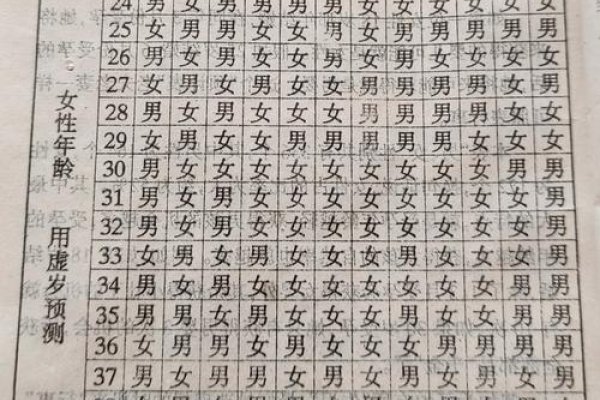 24
25 女 男 男 女 女 男 女 男 男 男 男 男
26 男 女 男 女 女 男 女 男 女 女 女 女
27 女 男 女 男 女 女 男 男 男 男 女 男
28 男 女 男 女 女 女 男 男 男 男 女 女
29 女 男 女 女 男 男 男 男 男 女 女 女
30 男 女 女 女 女 女 女 女 女 女 男 男
31 男 女 男 女 女 女 女 女 女 女 女 男
32 男 女 男 女 女 女 女 女 女 女 女 男
33 女 男 女 男 女 女 女 男 女 女 女 男
34 男 女 男 女 女 女 女 女 女 女 男 男
35 男 男 女 男 女 女 女 男 女 女 男 男
36 女 男 男 女 男 女 女 女 男 男 男 男
37 男 女 男 男 女 男 女 男 女 男 女 男
女性年龄
用虚岁预测